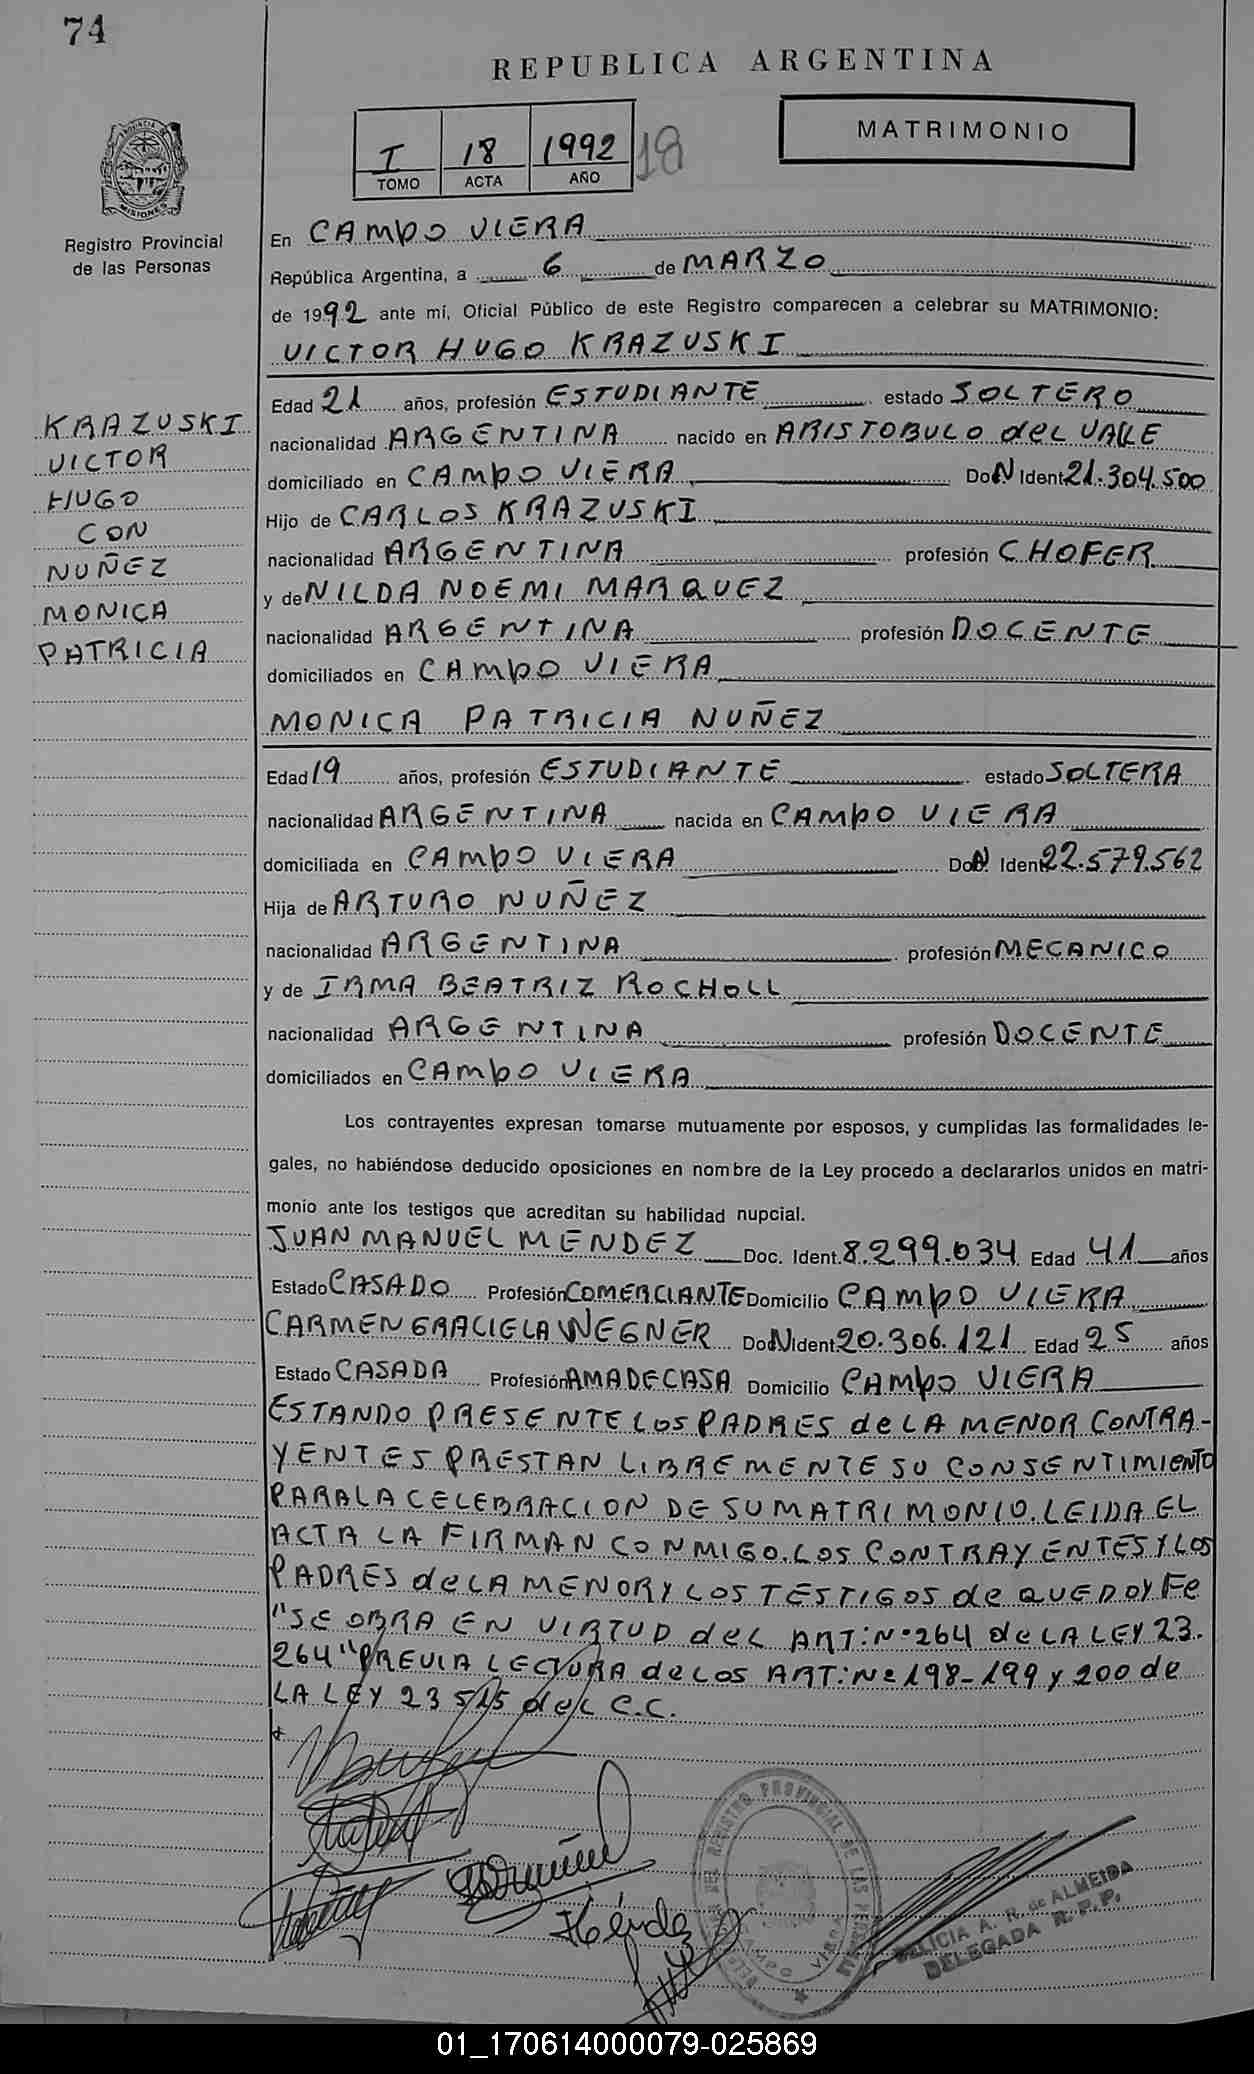 74
REPUBLICA ARGENTINA
MATRIMONIO
I 18 1992 18
TOMO ACTA AÑO
PROVINCIA DE
MISIONES
Registro Provincial
de las Personas
En CAMPO VIERA
República Argentina, a 6 de MARZO
de 1992 ante mí, Oficial Público de este Registro comparecen a celebrar su MATRIMONIO:
VICTOR HUGO KRAZUSKI
KRAZUSKI
VICTOR
HUGO
CON
NUÑEZ
MONICA
PATRICIA
Edad 21 años, profesión ESTUDIANTE estado SOLTERO
nacionalidad ARGENTINA nacido en ARISTOBULO del VALLE
domiciliado en CAMPO VIERA Doc N Ident 21.304.500
Hijo de CARLOS KRAZUSKI
nacionalidad ARGENTINA profesión CHOFER
y de NILDA NOEMI MARQUEZ
nacionalidad ARGENTINA profesión DOCENTE
domiciliados en CAMPO VIERA
MONICA PATRICIA NUÑEZ
Edad 19 años, profesión ESTUDIANTE estado SOLTERA
nacionalidad ARGENTINA nacida en CAMPO VIERA
domiciliada en CAMPO VIERA Doc N Ident 22.579.562
Hija de ARTURO NUÑEZ
nacionalidad ARGENTINA profesión MECANICO
y de IRMA BEATRIZ ROCHOLL
nacionalidad ARGENTINA profesión DOCENTE
domiciliados en CAMPO VIERA
Los contrayentes expresan tomarse mutuamente por esposos, y cumplidas las formalidades le-
gales, no habiéndose deducido oposiciones en nombre de la Ley procedo a declararlos unidos en matri-
monio ante los testigos que acreditan su habilidad nupcial.
JUAN MANUEL MENDEZ Doc. Ident. 8.299.034 Edad 41 años
Estado CASADO Profesión COMERCIANTE Domicilio CAMPO VIERA
CARMEN GRACIELA WEGNER Doc N Ident 20.306.121 Edad 25 años
Estado CASADA Profesión AMA DE CASA Domicilio CAMPO VIERA
ESTANDO PRESENTE LOS PADRES de LA MENOR CONTRA-
YENTES PRESTAN LIBREMENTE SU CONSENTIMIENTO
PARA LA CELEBRACION DE SU MATRIMONIO. LEIDA EL
ACTA LA FIRMAN CONMIGO. LOS CONTRAYENTES Y LOS
PADRES de LA MENOR Y LOS TESTIGOS de QUE DOY Fe
"SE OBRA EN VIRTUD del ART: Nº 264 de LA LEY 23.
264" PREVIA LECTURA de LOS ART: Nº 198-199 y 200 de
LA LEY 23515 del C.C.
REGISTRO PROVINCIAL DE LAS PERSONAS
CAMPO VIERA
FELICIA A. R. de ALMEIDA
DELEGADA R. P. P.
01_170614000079-025869